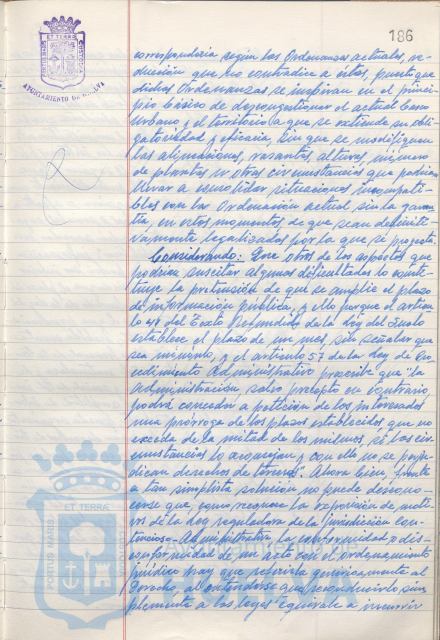 186
PORTUS MARIS ET TERRAE CUSTODIA
AYUNTAMIENTO DE HUELVA
correspondería según las Ordenanzas actuales, re-
ducción que no contradice a éstas, puesto que
dichas Ordenanzas se inspiran en el princi-
pio básico de descongestionar el actual Casco
Urbano y el territorio a que se extiende su obli-
gatoriedad y eficacia, sin que se modifiquen
las alineaciones, rasantes, alturas, número
de plantas u otras circunstancias que podrían
llevar a consolidar situaciones incompati-
bles con la Ordenación actual sin la garan-
tía en estos momentos de que sean definiti-
vamente legalizados por la que se proyecta.
Considerando: Que otros de los aspectos que
podrían suscitar algunas dificultades lo consti-
tuye la pretensión de que se amplíe el plazo
de información pública, y ello porque el artícu-
lo 41 del Texto Refundido de la Ley del Suelo
establece el plazo de un mes, sin señalar que
sea mínimo, y el artículo 57 de la Ley de Pro-
cedimiento Administrativo prescribe que "la
administración, salvo precepto en contrario
podrá conceder a petición de los interesados
una prórroga de los plazos establecidos que no
exceda de la mitad de los mismos si las cir-
cunstancias lo aconsejan y con ello no se perju-
dican derechos de terceros". Ahora bien, frente
a tan simplista solución no puede descono-
cerse que, como reconoce la exposición de moti-
vos de la Ley reguladora de la Jurisdicción con-
tencioso-Administrativa, la conformidad o dis-
conformidad de un acto con el ordenamiento
jurídico hay que referirla genéricamente al
Derecho, al entenderse que reconducirlo sim-
plemente a las leyes equivale a incurrir
PORTUS MARIS ET TERRAE CUSTODIA